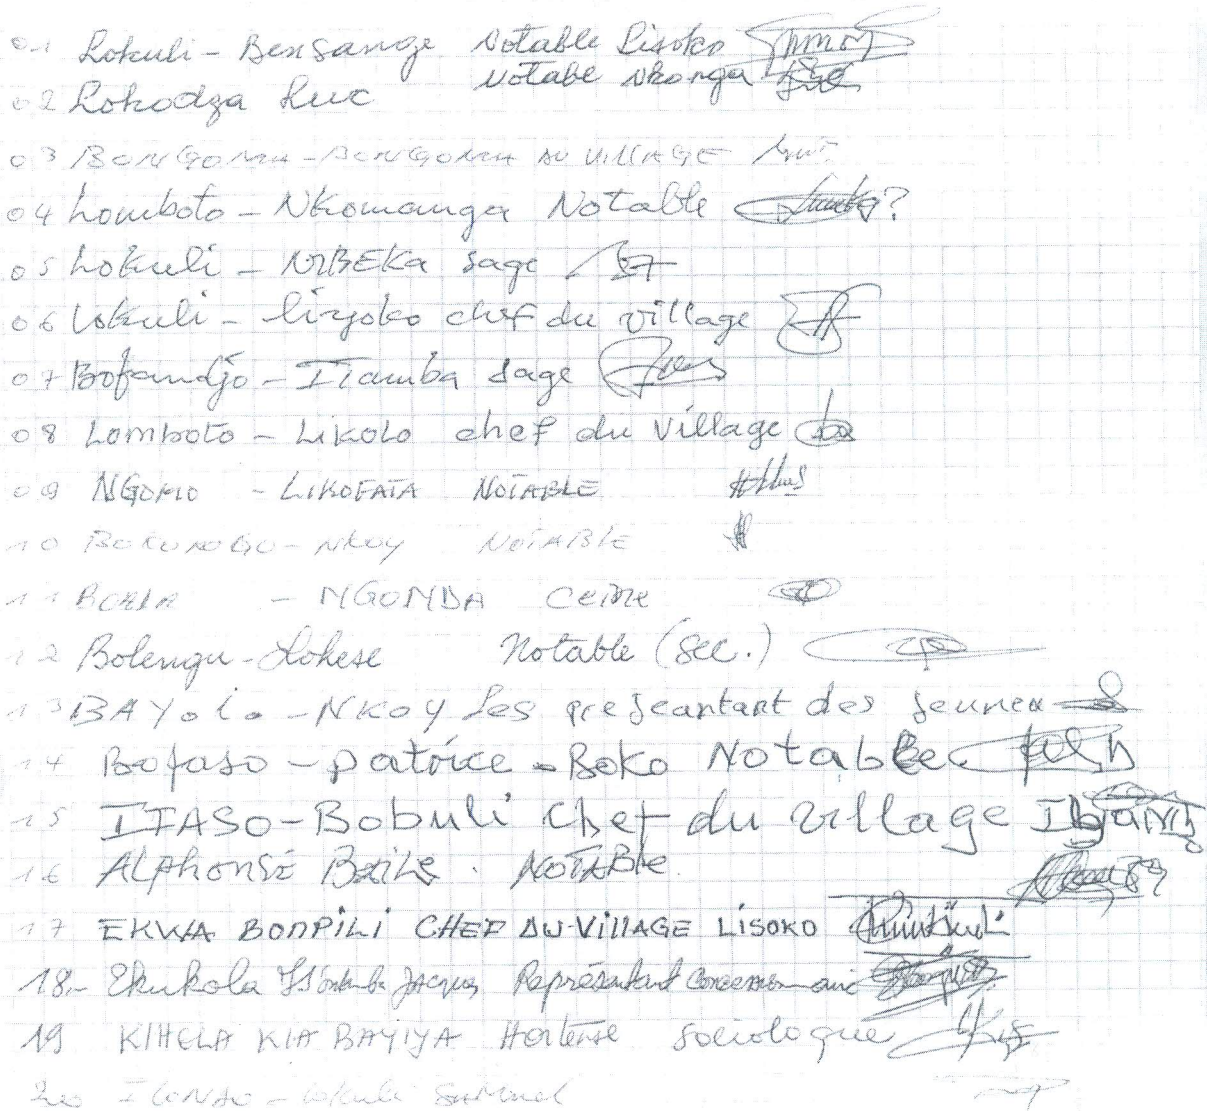 01 Lokuli - Bensange Notable Lisoko
02 Lokodza Luc Notabe Nkonga
03 BONGOMA - BONGOMA DU VILLAGE
04 Lomboto - Nkomanga Notable
05 Lokuli - sage
06 Lokuli - liryoko chef du village
07 Bofandjo - Itamba sage
08 Lomboto - Likolo chef du village
09 NGOMO - LIKOFATA NOTABLE
10 - NKOY NOTABLE
11 - NGONDA
12 Bolengu - Notable (Sec.)
13 BAYOLO - NKOY Les preseantant des jeunea
14 Bofaso - patrice - Boko Notable
15 ITASO - Bobuli chef du village
16 ALPHONSE NOTABLE
17 EKWA BOMPILI CHEF DU-VILLAGE LISOKO
18.- Ekukola Jacques Représentant
19 KIHELA KIA BAYIYA Hortense Sociologue
20 - Lokuli Samuel